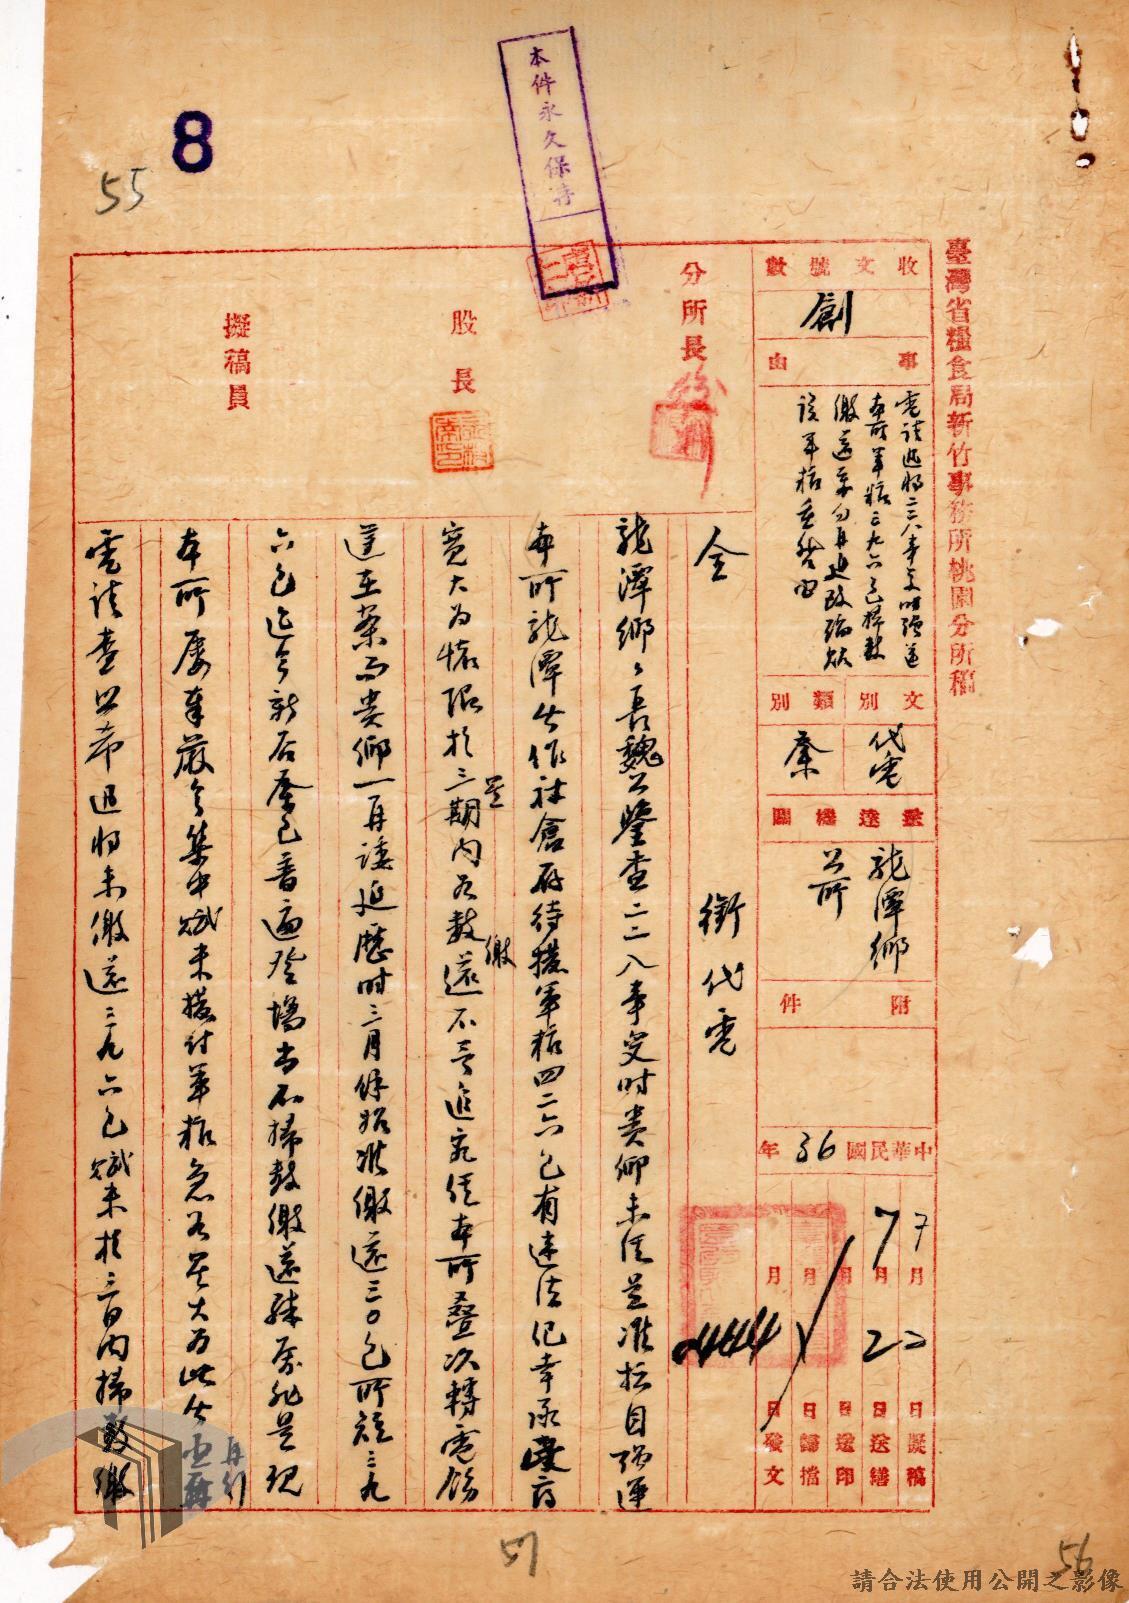 本件永久保存
8
55
臺灣省糧食局新竹事務所桃園分所稿
收文號數
創
事由
電請迅將二二八事變時強運
本所軍糧三九六包掃數
繳還希勿再延致貽誤
該軍糧重咎由
文別
代電
類別
秦
送達機關
龍潭鄉
公所
附件
中華民國36年
7月22日擬稿
7月22日送繕
月日送印
月日歸檔
月日發文
分所長
股長
擬稿員
全銜代電
龍潭鄉々長魏公鑒查二二八事變時貴鄉未經呈准擅自強運
本所龍潭合作社倉存待撥軍糧四二六包有違法紀幸承
寬大為懷限於三期內如數繳還不予追究經本所疊次轉電飭
運在案而貴鄉一再諉延歷時三月餘始准繳還三〇包所短三九
六包迄今新谷業已普遍登場尚不掃數繳還殊屬非是現
本所屢奉嚴令集中賦米撥付軍糧急如星火為此再行
電請查照希迅將未繳還三九六包賦米於三日內掃數繳
57
56
請合法使用公開之影像